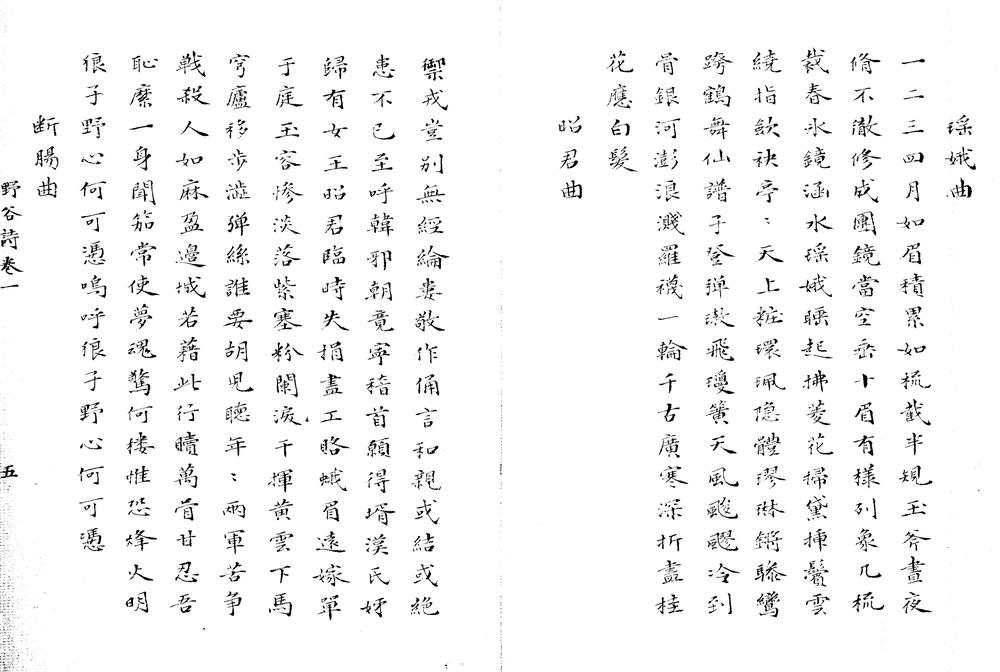 瑶娥曲
一二三四月如眉積累如梳截半規玉斧晝夜
脩不徹修成團鏡當空垂十眉有樣列象几梳
裁春氷鏡涵水瑶娥睡起拂菱花掃黛揷鬢雲
繞指歛袂亭〻天上粧環珮隐體璆琳鏘驂鸞
跨鶴舞仙譜子登彈璈飛瓊簧天風飈飈冷到
骨銀河澎浪濺羅襪一輪千古廣寒深折盡桂
花應白髮
昭君曲
禦戎豈別無經綸婁敬作俑言和親或結或絶
患不已至呼韓邪朝竟寧稽首願得壻漢氏妤
歸有女王昭君臨時失捐畫工賂蛾眉遠嫁單
于庭玉容慘淡落紫塞粉闌淚干揮黃雲下馬
穹廬移步澁彈絲誰要胡兒聽年〻兩軍苦争
戰殺人如麻盈邊城若藉此行贖萬骨甘忍吾
恥縻一身聞笳常使夢魂驚何㥪惟恐烽火明
狼子野心何可憑嗚呼狼子野心何可憑
断腸曲
野谷詩卷一
五